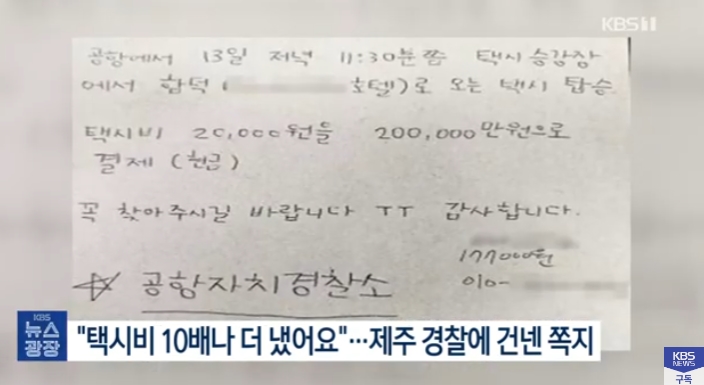 KBS 1
공항에서 13일 저녁 11:30분쯤 택시 승강장
에서 함덕 ( 호텔)로 오는 택시 탑승.
택시비 20,000원을 200,000만원으로
결제 (현금)
꼭 찾아주시길 바랍니다 ㅠㅠ 감사합니다.
177000원
010-
☆ 공항자치경찰소
KBS
뉴스
광장
"택시비 10배나 더 냈어요"…제주 경찰에 건넨 쪽지
KBS
NEWS
구독